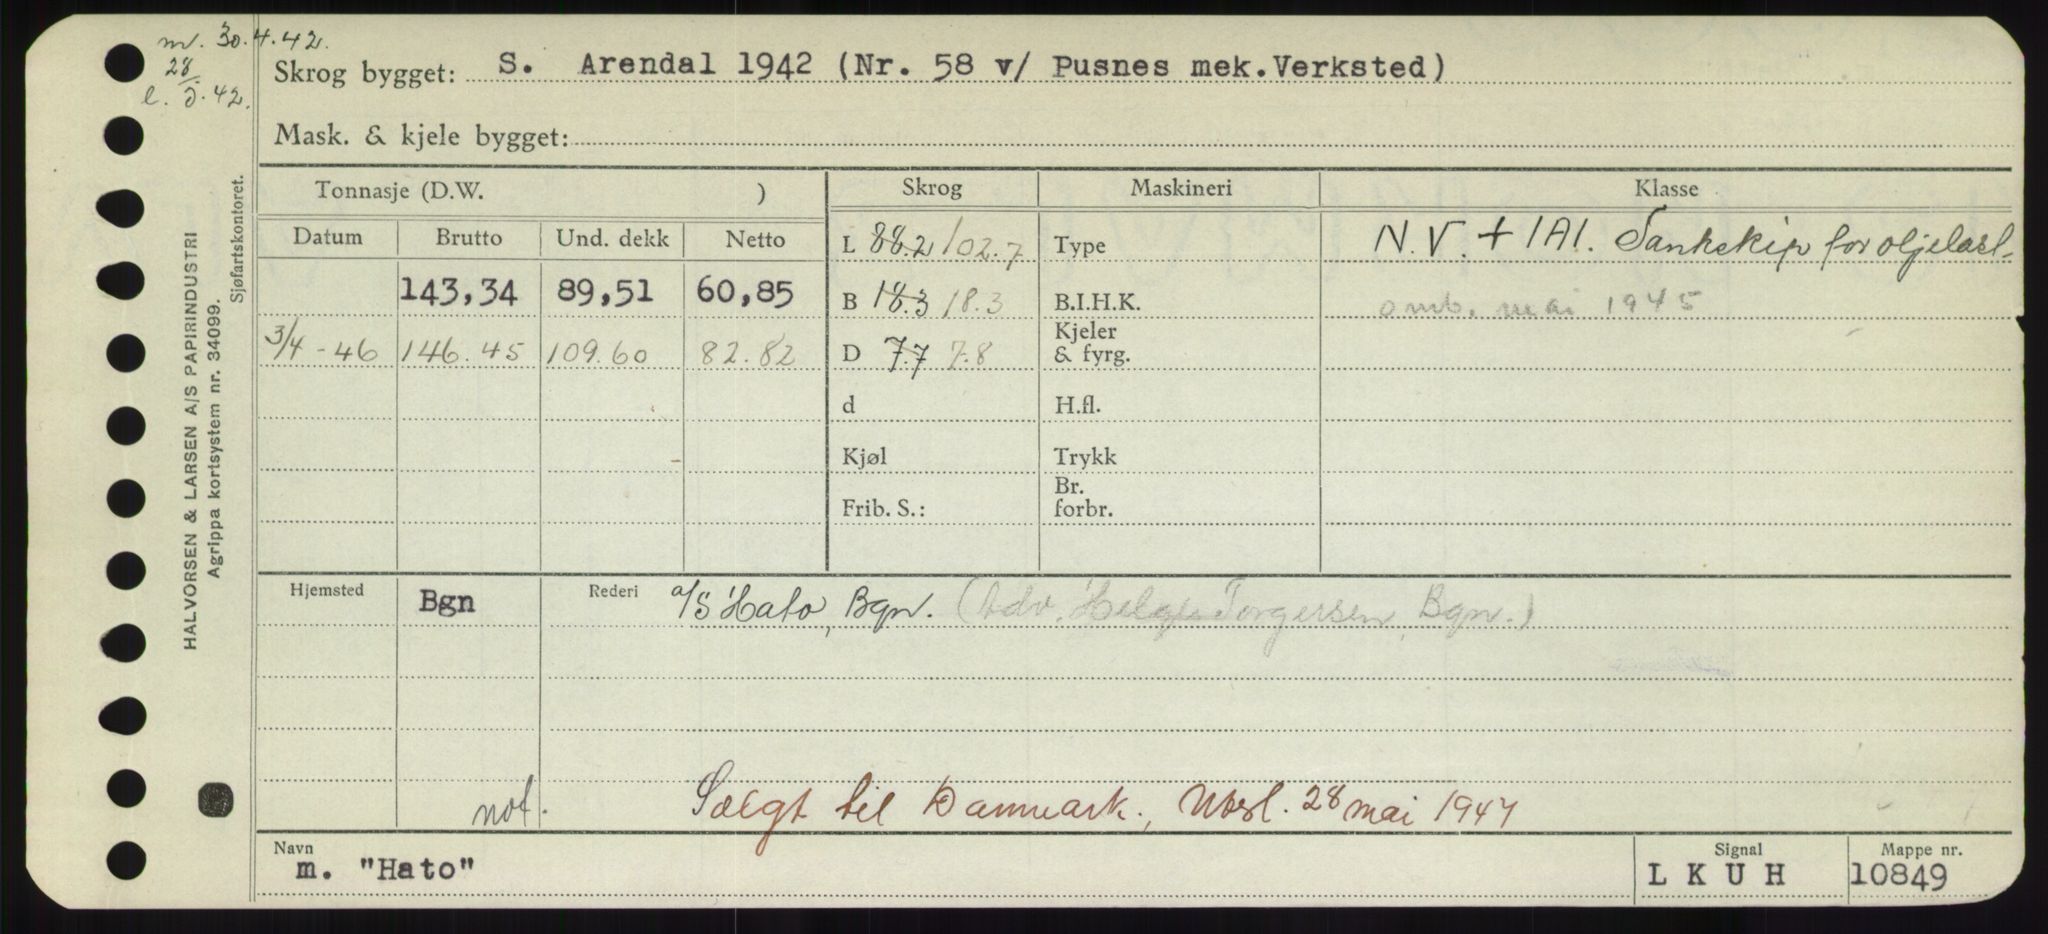 m. 30.4.42.
28
l. 5.42.
Skrog bygget: S. Arendal 1942 (Nr. 58 v/ Pusnes mek.Verksted)
Mask. & kjele bygget:
Tonnasje (D.W. ) Skrog Maskineri Klasse
Datum Brutto Und. dekk Netto L 88.2 102.7 Type N.V. + 1A1. Tankskip for oljelast.
143,34 89,51 60,85 B 18.3 18.3 B.I.H.K. omb. mai 1945
3/4-46 146.45 109.60 82.82 D 7.7 7.8 Kjeler & fyrg.
d H.fl.
Kjøl Trykk
Frib. S.: Br. forbr.
Hjemsted Bgn Rederi a/s Hato, Bgn. (Adv. Helge Torgersen, Bgn.)
not. Solgt til Danmark., Utsl. 28 mai 1947
Navn Signal Mappe nr.
m. "Hato" L K U H 10849
HALVORSEN & LARSEN A/S PAPIRINDUSTRI
Agrippa kortsystem nr. 34099.
Sjøfartskontoret.